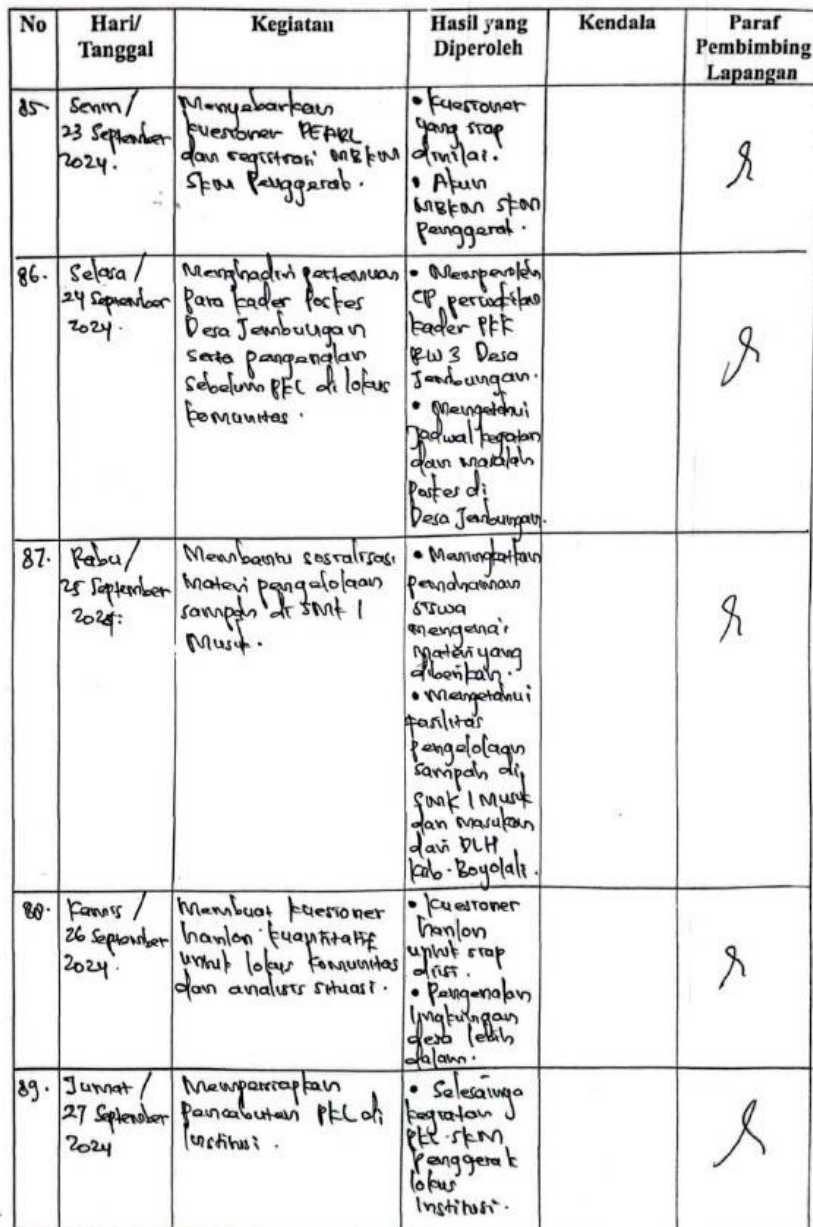 No
Hari/
Tanggal
Kegiatan
Hasil yang
Diperoleh
Kendala
Paraf
Pembimbing
Lapangan
85.
Senin /
23 September
2024.
Menyebarkan
kuesioner PEARL
dan registrasi MBKM
SKM Penggerak.
• Kuesioner
yang siap
dinilai.
• Akun
MBKM SKM
penggerak.
86.
Selasa /
24 September
2024.
Menghadiri pertemuan
para kader Poskes
Desa Jembungan
serta pengenalan
sebelum PKL di lokus
komunitas.
• Memperoleh
CP perwakilan
kader PKK
RW 3 Desa
Jembungan.
• Mengetahui
jadwal kegiatan
dan masalah
Poskes di
Desa Jembungan.
87.
Rabu /
25 September
2024.
Membantu sosialisasi
materi pengelolaan
sampah di SMK 1
Musuk.
• Meningkatkan
pemahaman
siswa
mengenai
materi yang
diberikan.
• Mengetahui
fasilitas
pengelolaan
sampah di
SMK 1 Musuk
dan masukan
dari DLH
Kab. Boyolali.
88.
Kamis /
26 September
2024.
Membuat kuesioner
hanlon kuantitatif
untuk lokus komunitas
dan analisis situasi.
• Kuesioner
hanlon
untuk siap
diisi.
• Pengenalan
lingkungan
desa lebih
dalam.
89.
Jumat /
27 September
2024
Mempersiapkan
pencabutan PKL di
institusi.
• Selesainya
kegiatan
PKL SKM
penggerak
lokus
institusi.